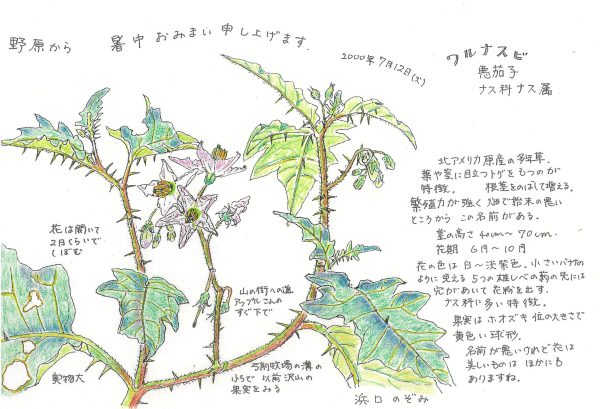 野原から 暑中おみまい申し上げます.
2000年7月12日(水)
ワルナスビ
悪茄子
ナス科ナス属
北アメリカ原産の多年草.
葉や茎に目立つトゲをもつのが
特徴. 根茎をのばして増える.
繁殖力が強く 畑で始末の悪い
ところから この名前がある.
茎の高さ 40cm〜70cm.
花期 6月〜10月
花の色は白〜淡紫色. 小さいバナナの
ように見える5つの雄しべの葯の先には
穴があいて花粉を出す.
ナス科に多い特徴.
果実はホオズキ位の大きさで
黄色い球形.
名前が悪いけれど花は
美しいものは ほかにも
ありますね.
花は開いて
2日くらいで
しぼむ
山の街への道
アップルさんの
すぐ下で
牧場の溝の
ふちで 以前沢山の
果実をみる
実物大
浜口のぞみ